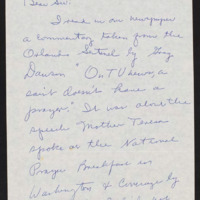 Dear Sir:
I read in our newspaper
a commentary taken from the
Orlando Sentinel by Greg
Dawson "On TV even, a
saint doesn't have a
prayer." It was about the
speech Mother Teresa
spoke at the National
Prayer Breakfast in
Washington & Coverage by